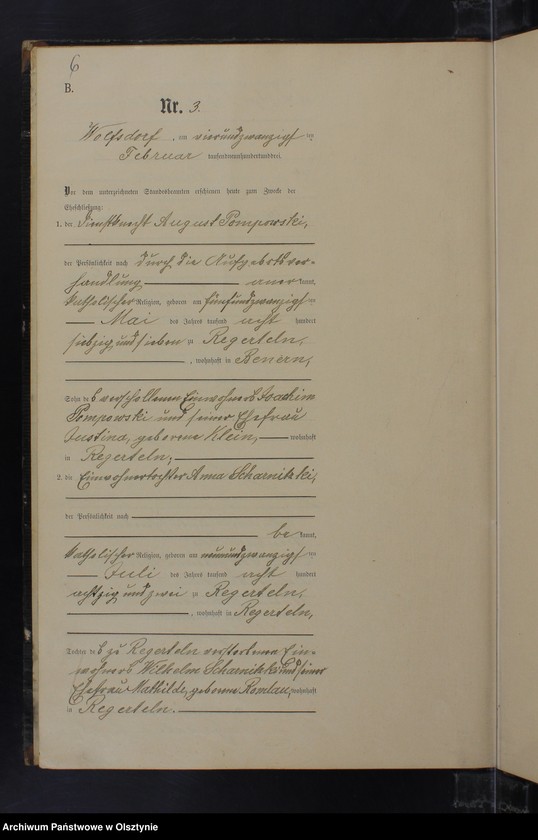 6
B.
Nr. 3.
Wolfsdorf, am vierundzwanzigsten
Februar tausendneunhundertunddrei.
Vor dem unterzeichneten Standesbeamten erschienen heute zum Zwecke der
Eheschließung:
1. der Dienstknecht August Pompowski,
der Persönlichkeit nach durch die Aufgebotsver-
handlung anerkannt,
katholischer Religion, geboren am fünfundzwanzigsten
Mai des Jahres tausend acht hundert
siebzig und sieben zu Regerteln,
, wohnhaft in Benern,
Sohn des verschollenen Einwohners Joachim
Pompowski und seiner Ehefrau
Justina, geborene Klein, wohnhaft
in Regerteln;
2. die Einwohnertochter Anna Scharnitzki,
der Persönlichkeit nach
bekannt,
katholischer Religion, geboren am neunundzwanzigsten
Juli des Jahres tausend acht hundert
achtzig und zwei zu Regerteln,
, wohnhaft in Regerteln,
Tochter des zu Regerteln verstorbenen Ein-
wohners Wilhelm Scharnitzki und seiner
Ehefrau Mathilde, geborene wohnhaft
in Regerteln.
Archiwum Państwowe w Olsztynie